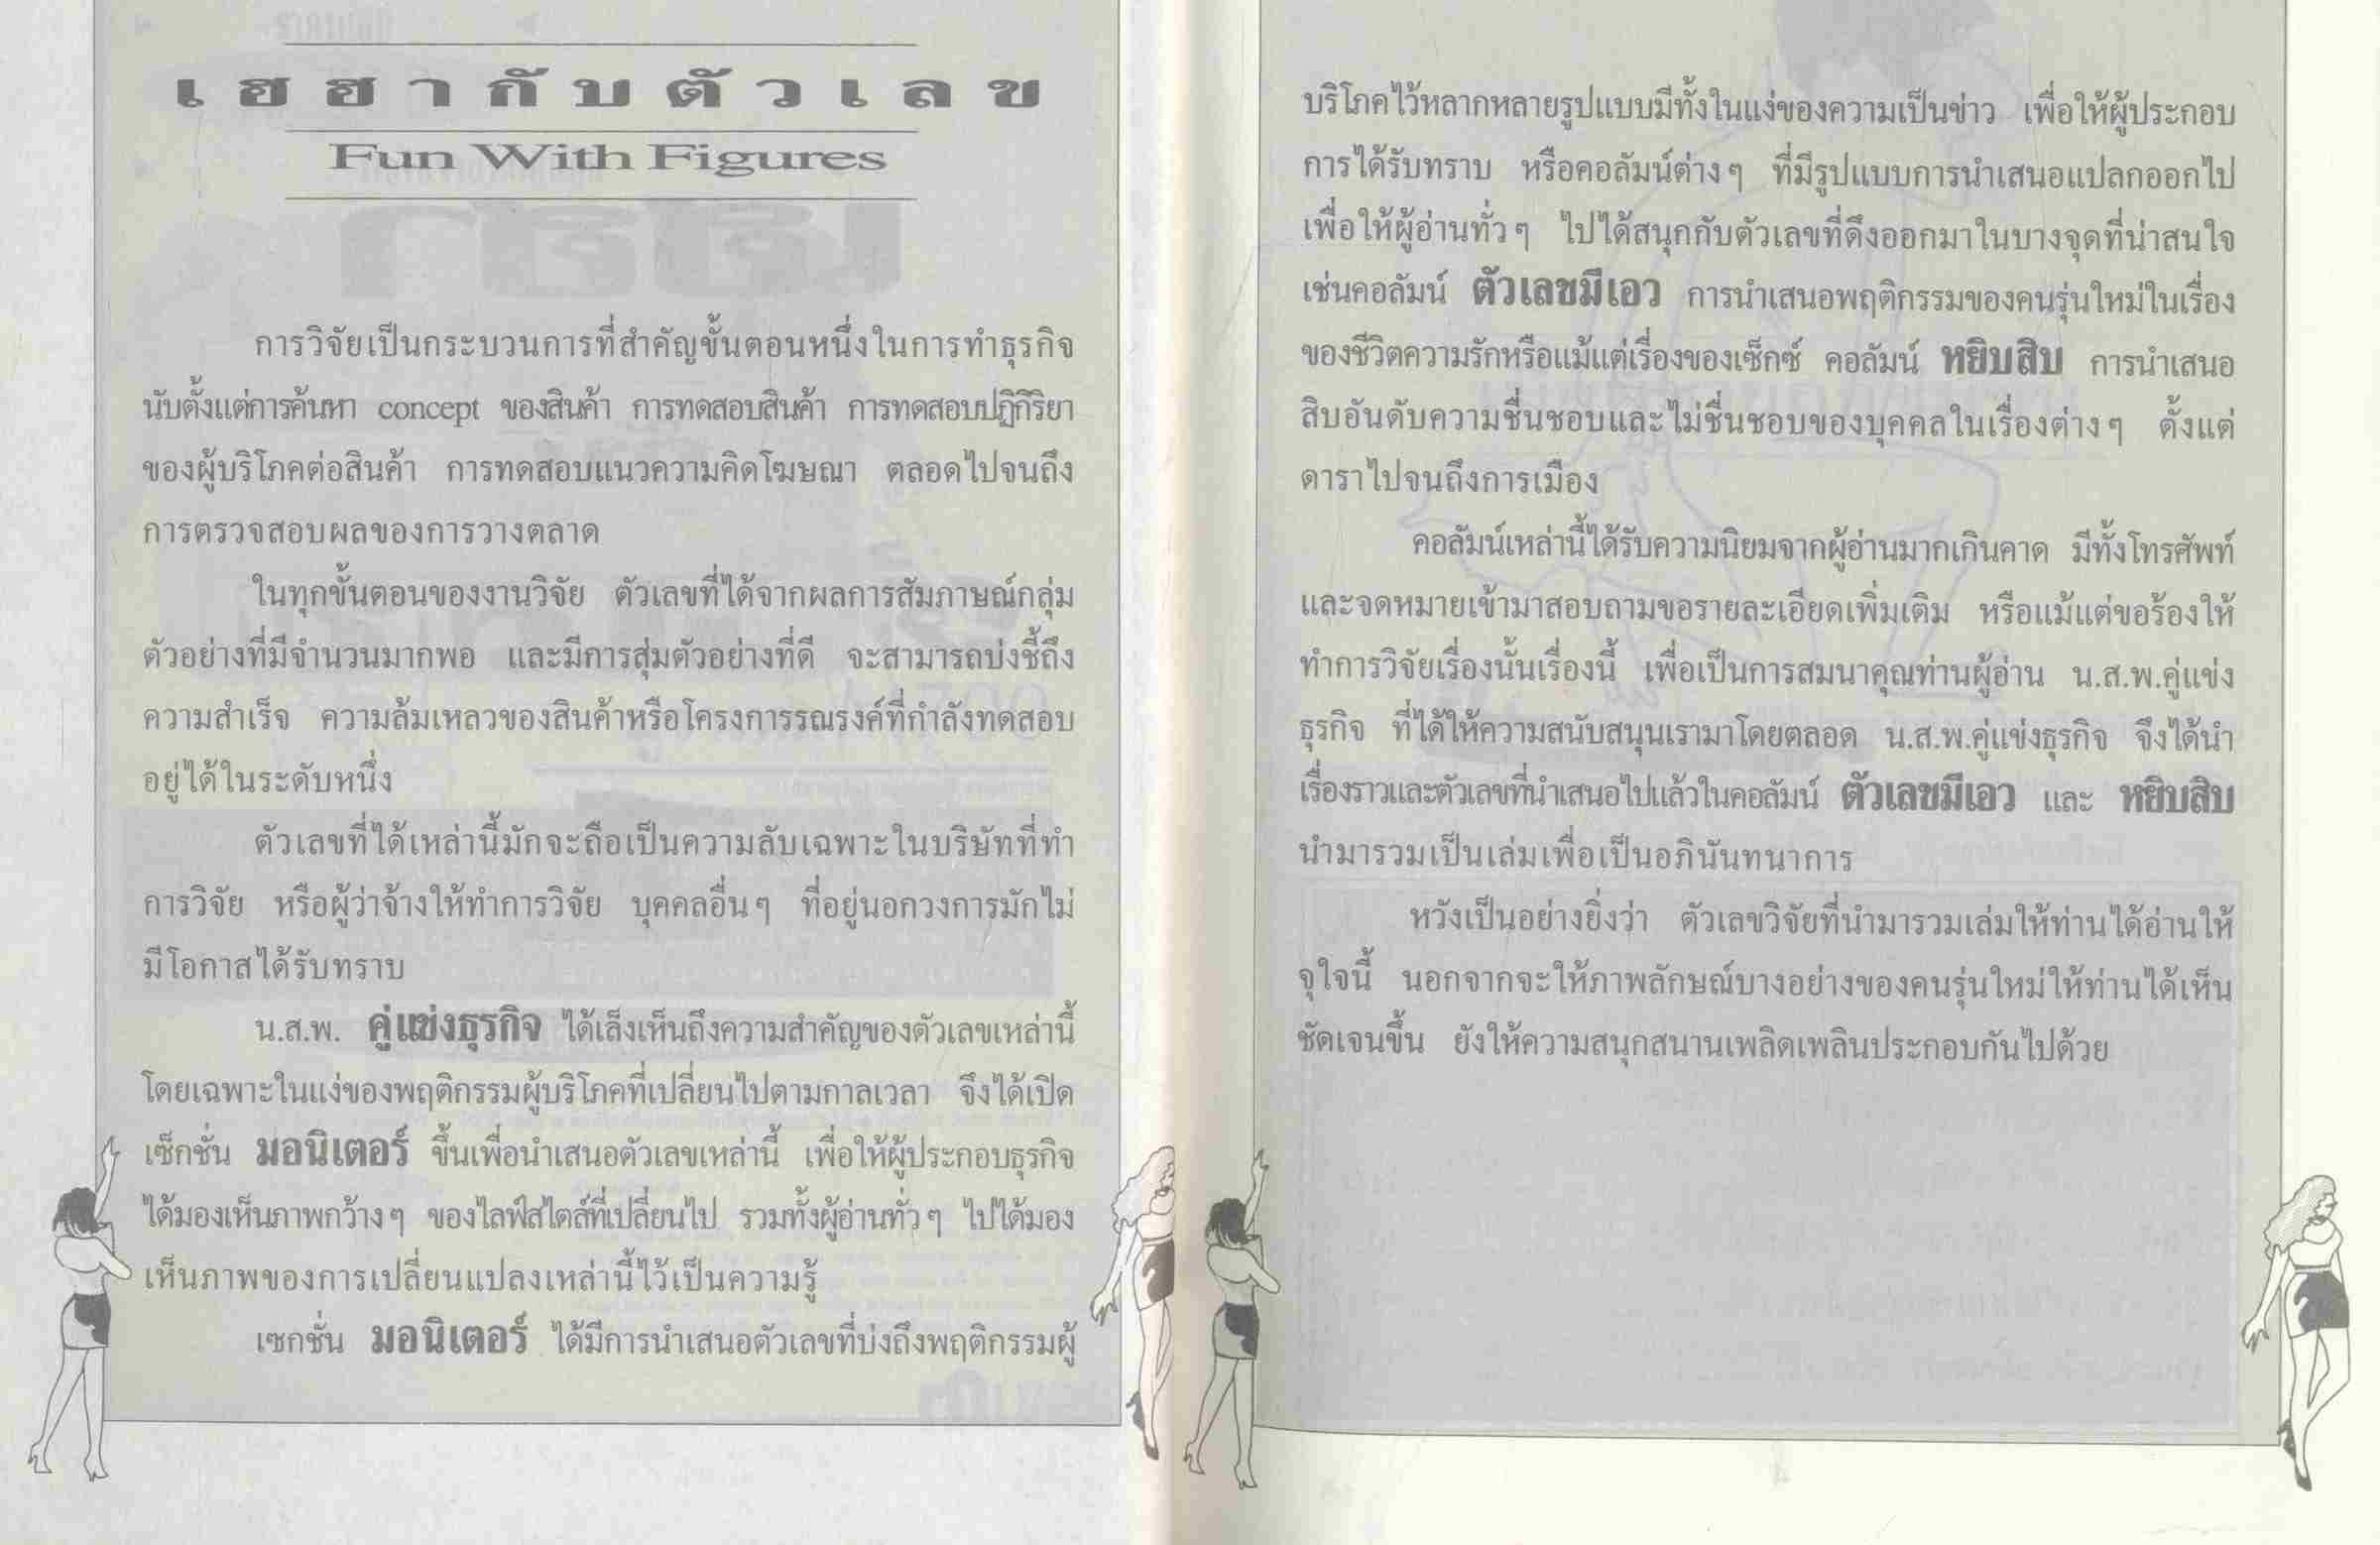 เฮฮากับตัวเลข
Fun With Figures
การวิจัยเป็นกระบวนการที่สำคัญขั้นตอนหนึ่งในการทำธุรกิจ
นับตั้งแต่การค้นหา concept ของสินค้า การทดสอบสินค้า การทดสอบปฏิกิริยา
ของผู้บริโภคต่อสินค้า การทดสอบแนวความคิดโฆษณา ตลอดไปจนถึง
การตรวจสอบผลของการวางตลาด
ในทุกขั้นตอนของงานวิจัย ตัวเลขที่ได้จากผลการสัมภาษณ์กลุ่ม
ตัวอย่างที่มีจำนวนมากพอ และมีการสุ่มตัวอย่างที่ดี จะสามารถบ่งชี้ถึง
ความสำเร็จ ความล้มเหลวของสินค้าหรือโครงการรณรงค์ที่กำลังทดสอบ
อยู่ได้ในระดับหนึ่ง
ตัวเลขที่ได้เหล่านี้มักจะถือเป็นความลับเฉพาะในบริษัทที่ทำ
การวิจัย หรือผู้ว่าจ้างให้ทำการวิจัย บุคคลอื่นๆ ที่อยู่นอกวงการมักไม่
มีโอกาสได้รับทราบ
น.ส.พ. คู่แข่งธุรกิจ ได้เล็งเห็นถึงความสำคัญของตัวเลขเหล่านี้
โดยเฉพาะในแง่ของพฤติกรรมผู้บริโภคที่เปลี่ยนไปตามกาลเวลา จึงได้เปิด
เซ็กชั่น มอนิเตอร์ ขึ้นเพื่อนำเสนอตัวเลขเหล่านี้ เพื่อให้ผู้ประกอบธุรกิจ
ได้มองเห็นภาพกว้างๆ ของไลฟ์สไตล์ที่เปลี่ยนไป รวมทั้งผู้อ่านทั่วๆ ไปได้มอง
เห็นภาพของการเปลี่ยนแปลงเหล่านี้ไว้เป็นความรู้
เซกชั่น มอนิเตอร์ ได้มีการนำเสนอตัวเลขที่บ่งถึงพฤติกรรมผู้
บริโภคไว้หลากหลายรูปแบบมีทั้งในแง่ของความเป็นข่าว เพื่อให้ผู้ประกอบ
การได้รับทราบ หรือคอลัมน์ต่างๆ ที่มีรูปแบบการนำเสนอแปลกออกไป
เพื่อให้ผู้อ่านทั่วๆ ไปได้สนุกกับตัวเลขที่ดึงออกมาในบางจุดที่น่าสนใจ
เช่นคอลัมน์ ตัวเลขมีเอว การนำเสนอพฤติกรรมของคนรุ่นใหม่ในเรื่อง
ของชีวิตความรักหรือแม้แต่เรื่องของเซ็กซ์ คอลัมน์ หยิบสิบ การนำเสนอ
สิบอันดับความชื่นชอบและไม่ชื่นชอบของบุคคลในเรื่องต่างๆ ตั้งแต่
ดาราไปจนถึงการเมือง
คอลัมน์เหล่านี้ได้รับความนิยมจากผู้อ่านมากเกินคาด มีทั้งโทรศัพท์
และจดหมายเข้ามาสอบถามขอรายละเอียดเพิ่มเติม หรือแม้แต่ขอร้องให้
ทำการวิจัยเรื่องนั้นเรื่องนี้ เพื่อเป็นการสมนาคุณท่านผู้อ่าน น.ส.พ.คู่แข่ง
ธุรกิจ ที่ได้ให้ความสนับสนุนเรามาโดยตลอด น.ส.พ.คู่แข่งธุรกิจ จึงได้นำ
เรื่องราวและตัวเลขที่นำเสนอไปแล้วในคอลัมน์ ตัวเลขมีเอว และ หยิบสิบ
นำมารวมเป็นเล่มเพื่อเป็นอภินันทนาการ
หวังเป็นอย่างยิ่งว่า ตัวเลขวิจัยที่นำมารวมเล่มให้ท่านได้อ่านให้
จุใจนี้ นอกจากจะให้ภาพลักษณ์บางอย่างของคนรุ่นใหม่ให้ท่านได้เห็น
ชัดเจนขึ้น ยังให้ความสนุกสนานเพลิดเพลินประกอบกันไปด้วย